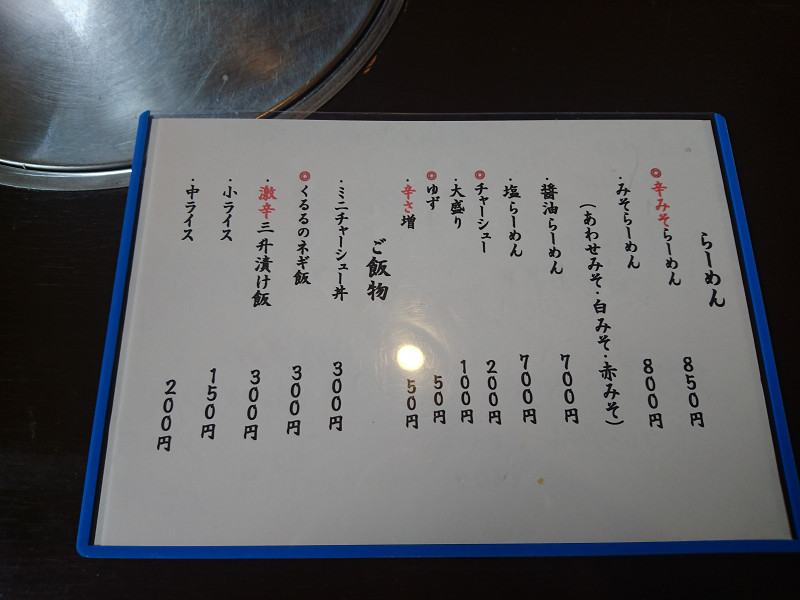 らーめん
◎辛みそらーめん 850円
・みそらーめん 800円
(あわせみそ・白みそ・赤みそ)
・醤油らーめん 700円
・塩らーめん 700円
◎チャーシュー 200円
・大盛り 100円
◎ゆず 50円
・辛さ増 50円
ご飯物
・ミニチャーシュー丼 300円
◎くるるのネギ飯 300円
・激辛三升漬け飯 300円
・小ライス 150円
・中ライス 200円